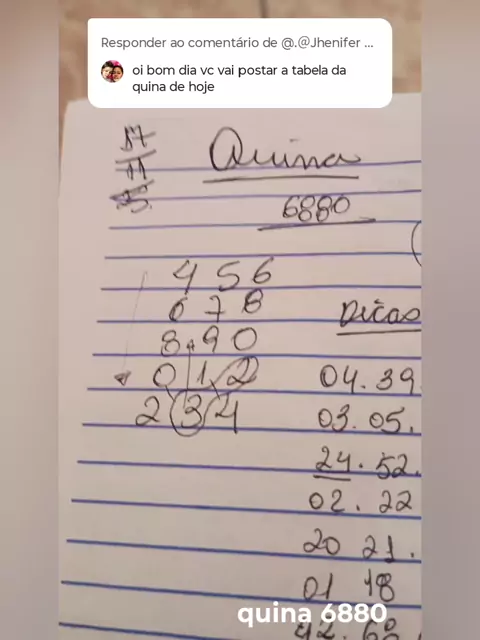 Responder ao comentário de @.@Jhenifer ...
oi bom dia vc vai postar a tabela da
quina de hoje
17
11
Quina
6880
4 5 6
6 7 8
8 9 0
0 1 2
2 3 4
Dicas
04. 39
03. 05.
24. 52.
02. 22
20 21.
01 18
42 62
quina 6880